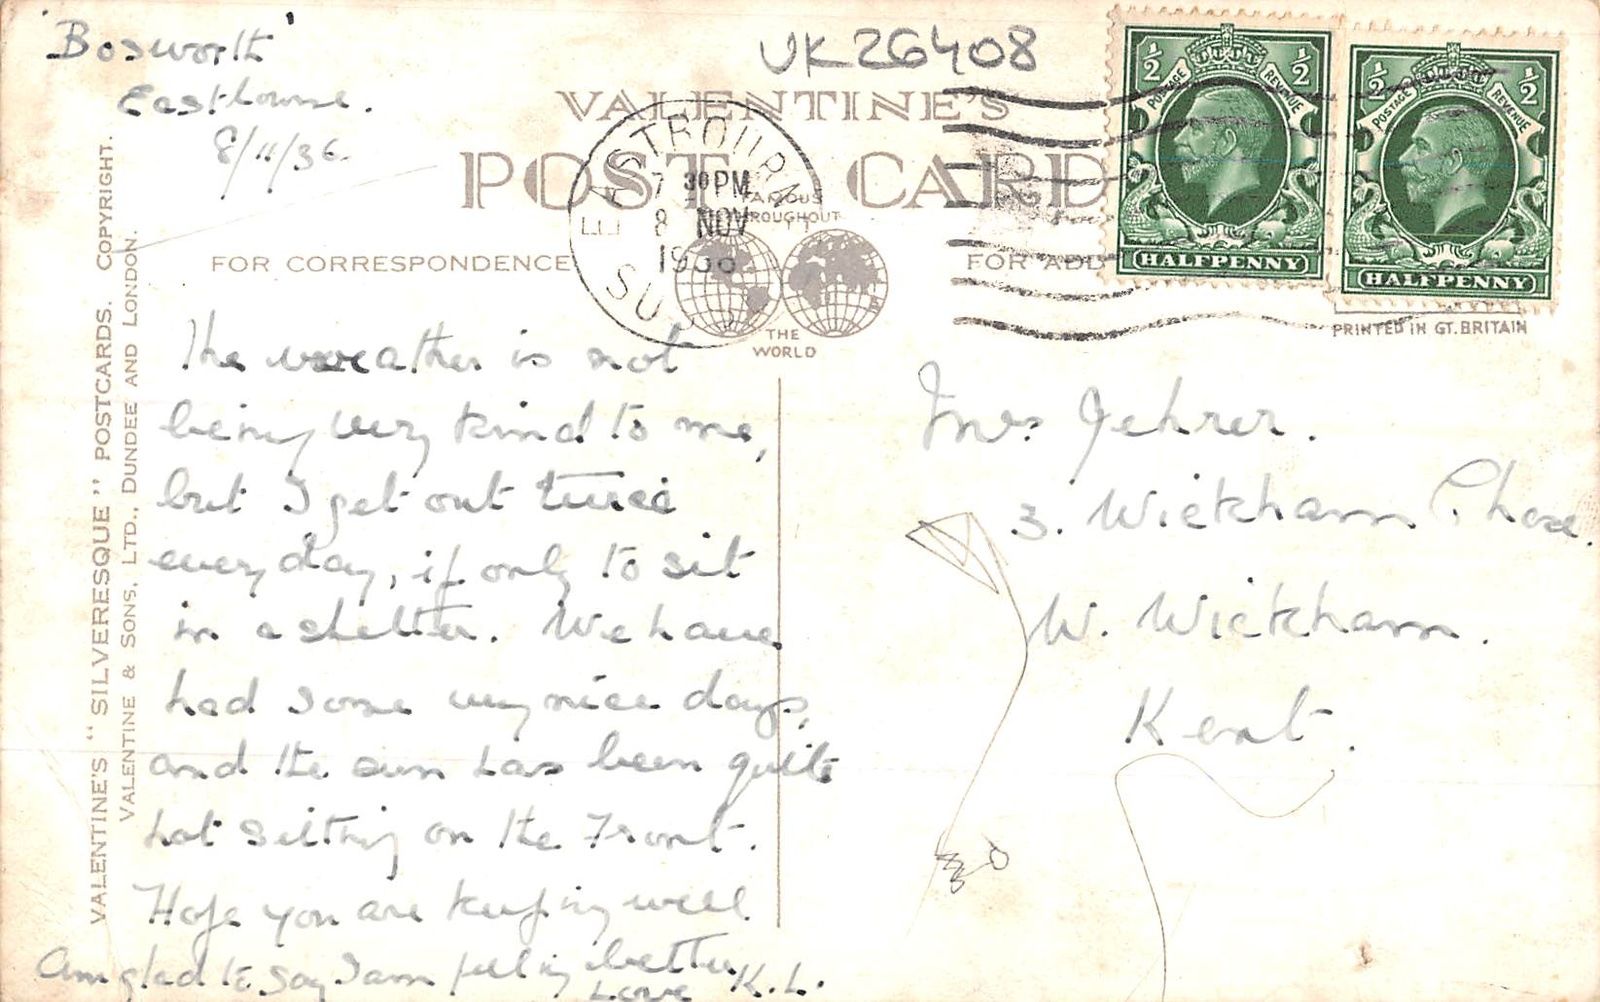 'Bosworth'
Eastbourne.
8/11/36.
UK26408
VALENTINE'S
POST CARD
FAMOUS
THROUGHOUT
THE
WORLD
FOR CORRESPONDENCE
FOR ADD
EASTBOURNE
7 30 PM
8 NOV
1936
SUS
1/2 1/2
POSTAGE REVENUE
HALFPENNY
1/2 1/2
POSTAGE REVENUE
HALFPENNY
PRINTED IN GT. BRITAIN
VALENTINE'S "SILVERESQUE" POSTCARDS. COPYRIGHT.
VALENTINE & SONS. LTD., DUNDEE AND LONDON.
The weather is not
being very kind to me,
but I get out twice
every day, if only to sit
in a shelter. We have
had some very nice days,
and the sun has been quite
hot sitting on the Front.
Hope you are keeping well
Am glad to say I am feeling better
Love K.L.
Mrs Jehrer.
3. Wickham Chase.
W. Wickham.
Kent.